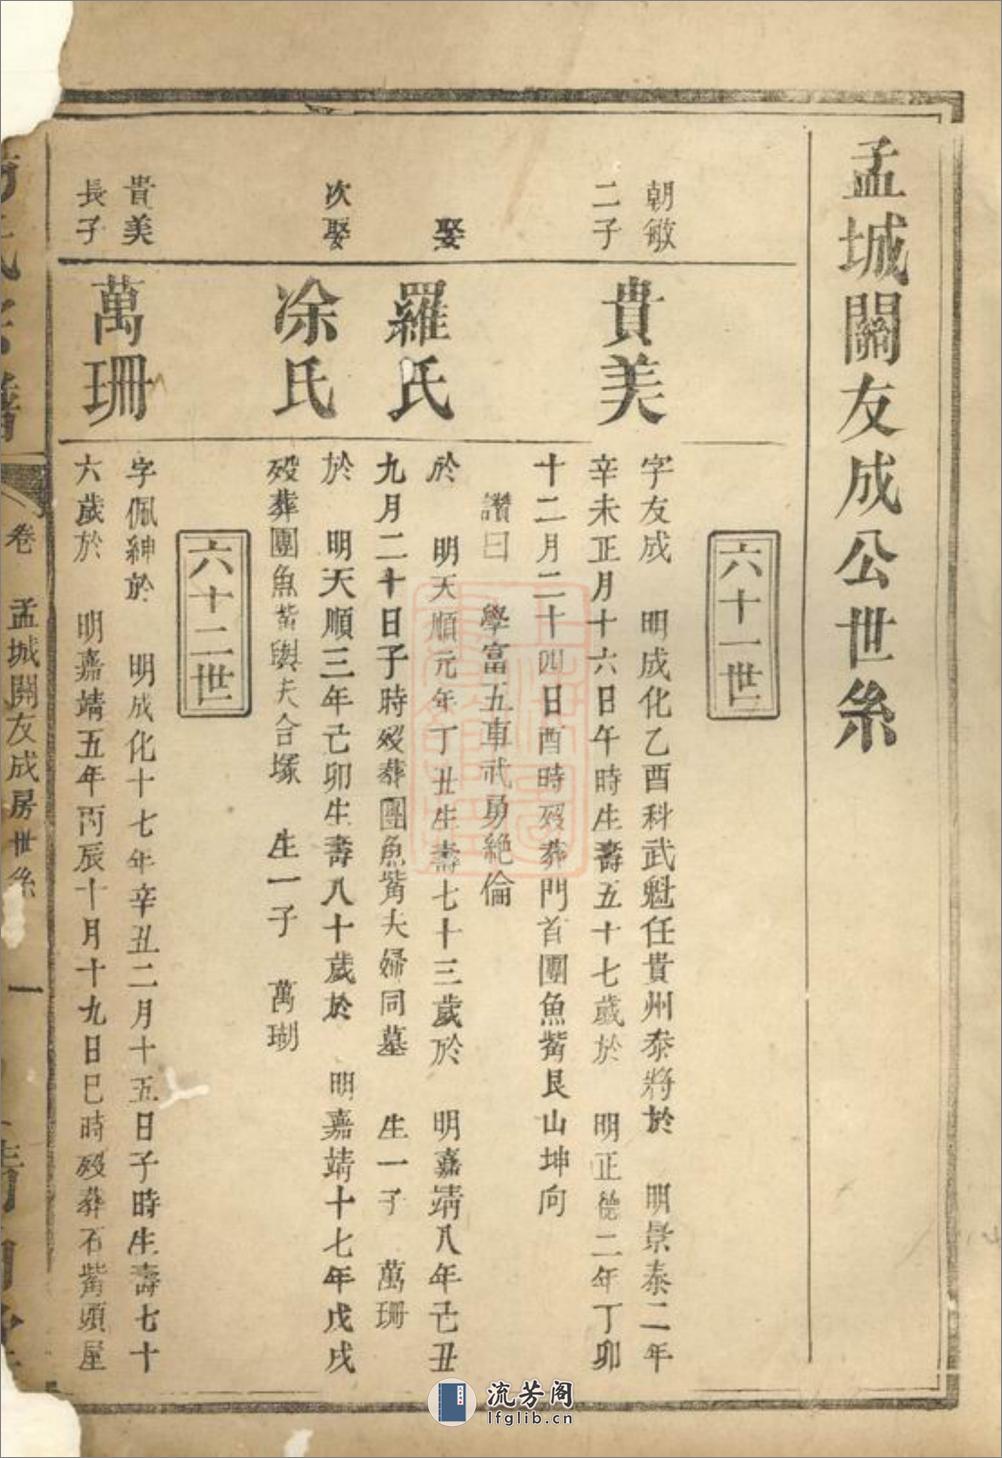 孟城關友成公世系
六十一世
朝敏
二子
貴美
字友成 明成化乙酉科武魁任貴州泰將於 明景泰二年
辛未正月十六日午時生壽五十七歲於 明正德二年丁卯
十二月二十四日酉時歿葬門首團魚觜艮山坤向
讚曰 學富五車武勇絕倫
娶
羅氏
於 明天順元年丁丑生壽七十三歲於 明嘉靖八年己丑
九月二十日子時歿葬團魚觜夫婦同墓 生一子 萬珊
次娶
凃氏
於 明天順三年己卯生壽八十歲於 明嘉靖十七年戊戌
歿葬團魚觜與夫合塚 生一子 萬瑚
六十二世
貴美
長子
萬珊
字佩紳於 明成化十七年辛丑二月十五日子時生壽七十
六歲於 明嘉靖五年丙辰十月十九日巳時歿葬石觜頭屋
卷 孟城關友成房世系 一
流芳阁
lfglib.cn